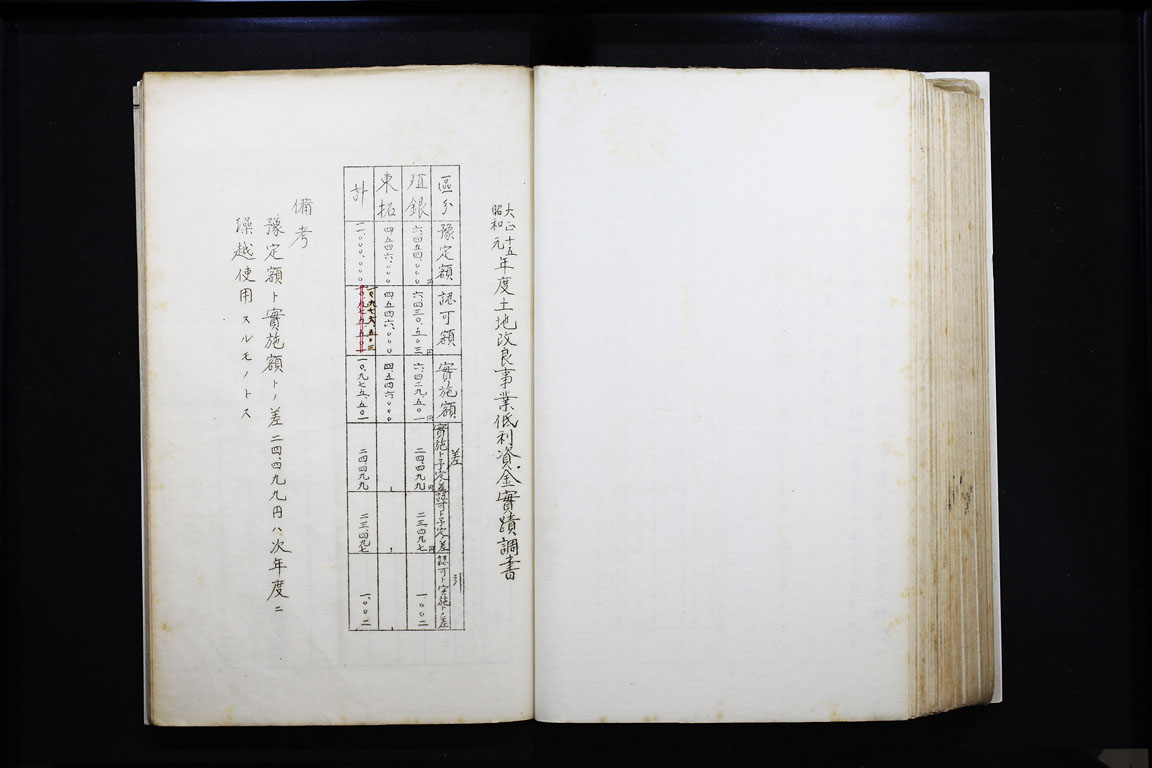 大正十五
昭和元
年度土地改良事業低利資金實蹟調書
區分 豫定額 認可額 實施額 差引 實施ト予定ノ差 認可ト予定ノ差 認可ト實施トノ差
殖銀 六四五四、〇〇〇円 六四三〇、五〇三円 六四二九、五〇一円 二四、四九九円 二三、四九七円 一、〇〇二
東拓 四五四六、〇〇〇 四五四六、〇〇〇 四五四六、〇〇〇
計 一一、〇〇〇、〇〇〇 一〇、九七六、五〇三 一〇、九七五、五〇一 二四四九九 二三、四九七 一、〇〇二
備考
豫定額ト實施額トノ差二四、四九九円ハ次年度ニ
繰越使用スルモノトス